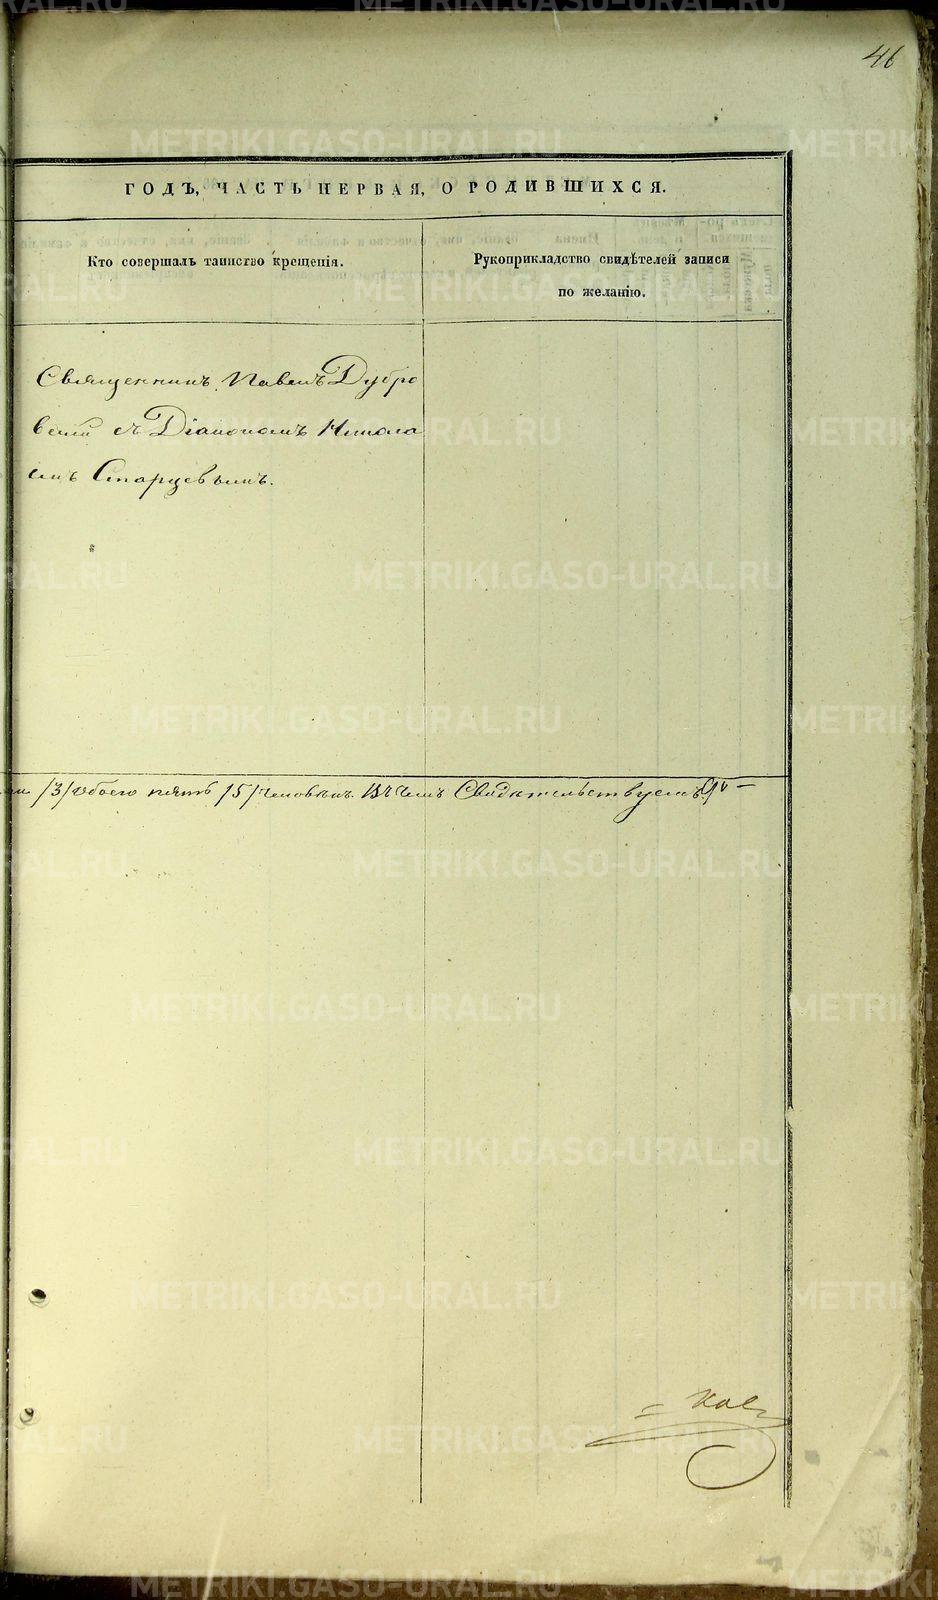 46
ГОДЪ, ЧАСТЬ ПЕРВАЯ, О РОДИВШИХСЯ.
Кто совершалъ таинство крещенія.
Рукоприкладство свидѣтелей записи
по желанію.
Священникъ Павелъ Дубро
вскій съ Діакономъ Никола
емъ Старцевымъ.
/3/ обоего пять /5/ человѣкъ. Въ чемъ Свидѣтельствуемъ
METRIKI.GASO-URAL.RU